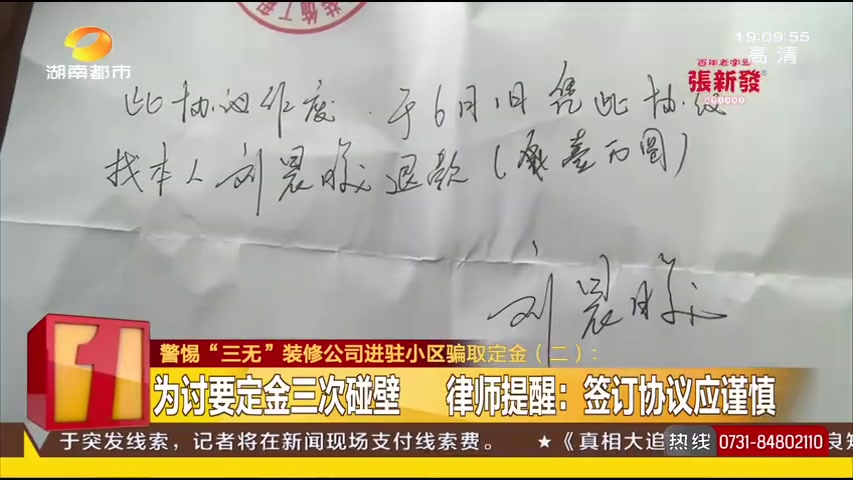 19:09:55
高清
湖南都市
百年老字号
張新發
此协议作废.于6月1日凭此协议
找本人刘晨曦退款(贰壹万圆)
刘晨曦
1
警惕“三无”装修公司进驻小区骗取定金(二):
为讨要定金三次碰壁 律师提醒:签订协议应谨慎
于突发线索,记者将在新闻现场支付线索费。 ★《真相大追
热线 0731-84802110
良知